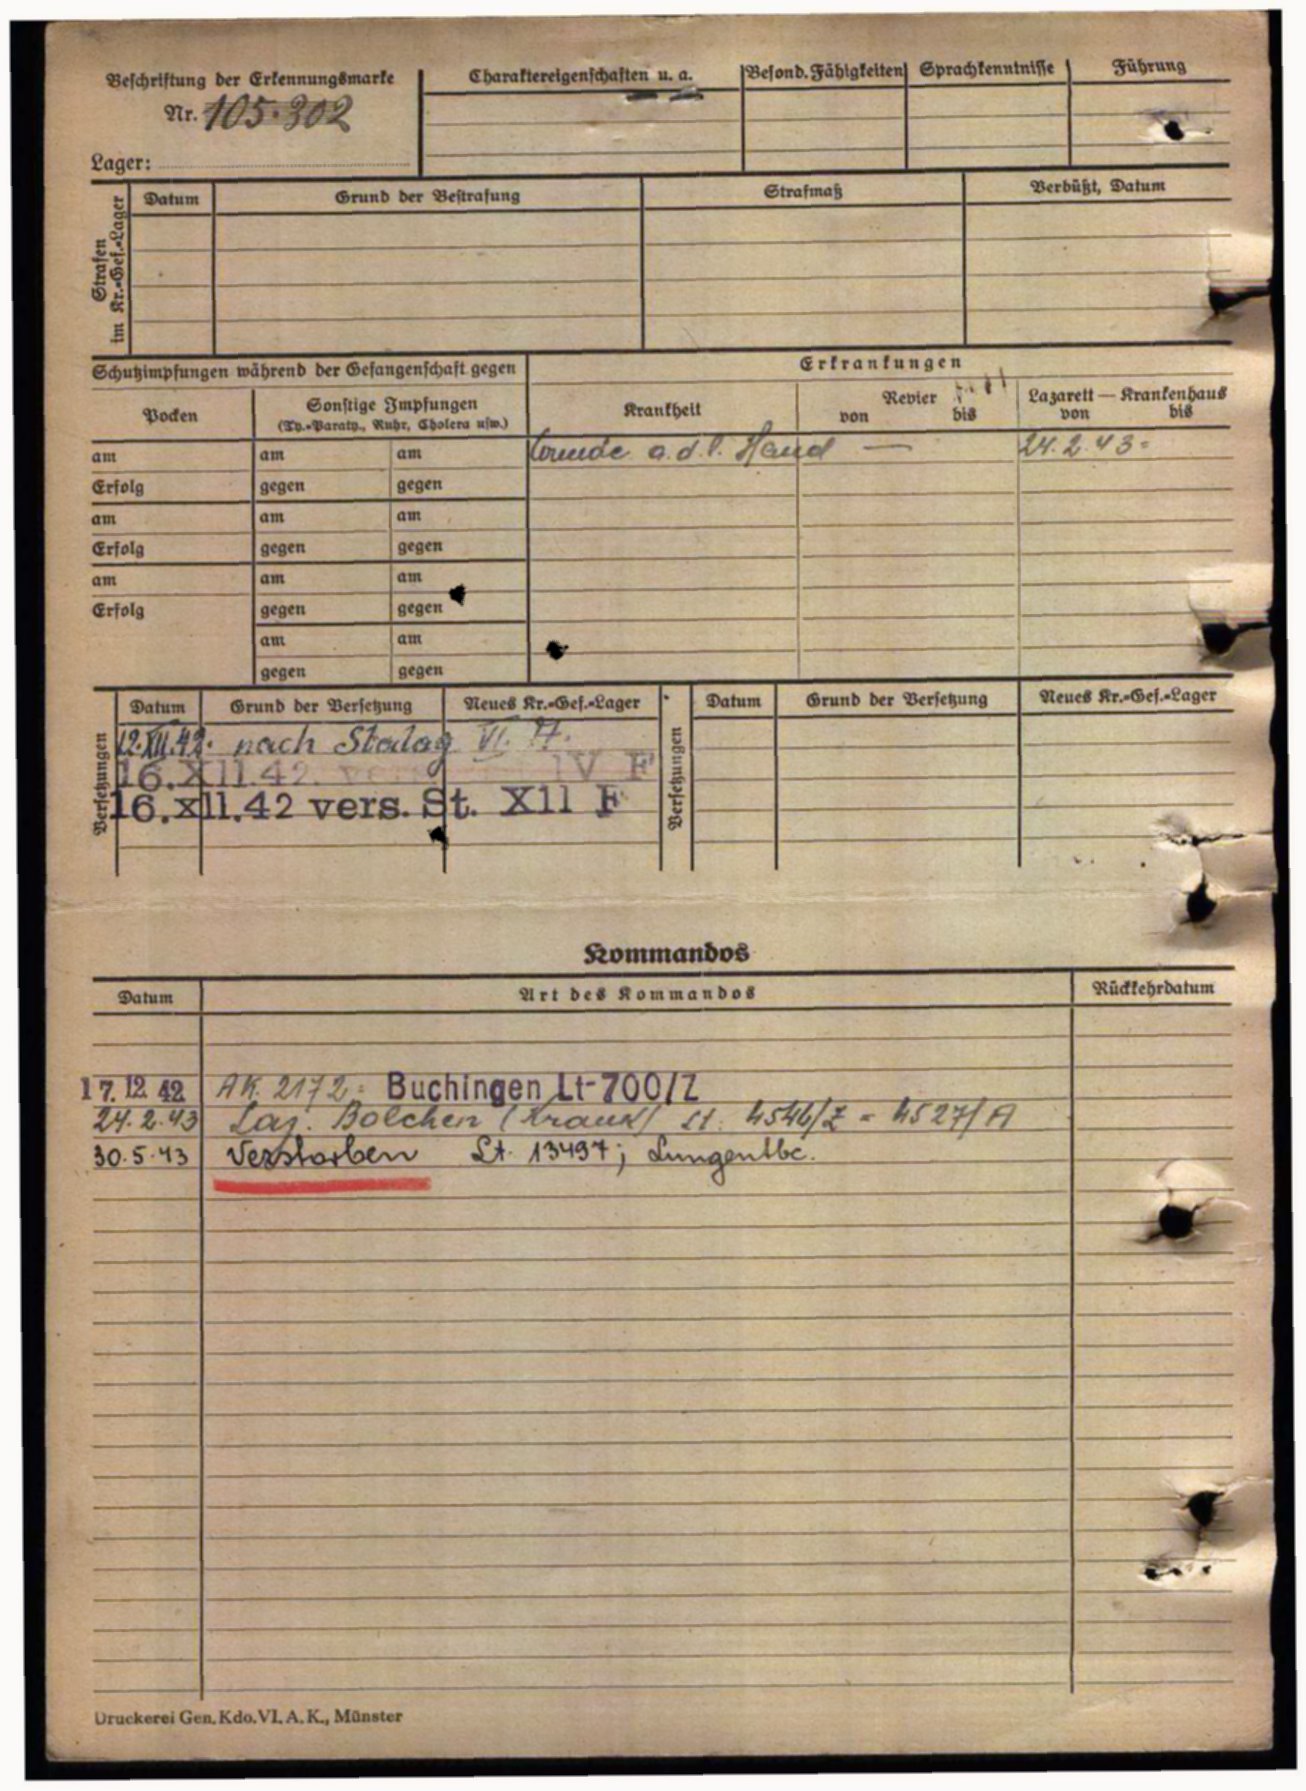 Beschriftung der Erkennungsmarke
Nr. 105.302
Lager:
Charaktereigenschaften u. a.
Besond. Fähigkeiten
Sprachkenntnisse
Führung
Strafen im Kr.=Gef.=Lager
Datum
Grund der Bestrafung
Strafmaß
Verbüßt, Datum
Schutzimpfungen während der Gefangenschaft gegen
Erkrankungen
Pocken
Sonstige Impfungen
(Ty.=Paraty., Ruhr, Cholera usw.)
Krankheit
Revier
von bis
Lazarett — Krankenhaus
von bis
am am am Wunde a. d. l. Hand — 24.2.43=
Erfolg gegen gegen
am am am
Erfolg gegen gegen
am am am
Erfolg gegen gegen
am am
gegen gegen
Versetzungen
Datum Grund der Versetzung Neues Kr.=Gef.=Lager
12.XII.42. nach Stalag VI.
16.XII.42. IV F
16.XII.42 vers. St. XII F
Versetzungen
Datum Grund der Versetzung Neues Kr.=Gef.=Lager
Kommandos
Datum Art des Kommandos Rückkehrdatum
17. 12. 42 AK. 2172 : Buchingen Lt-700/Z
24.2.43 Laz. Bolchen (krank) Lt. 4546/Z = 4527/A
30.5.43 Verstorben Lt. 13497; Lungentbc.
Druckerei Gen. Kdo. VI. A. K., Münster